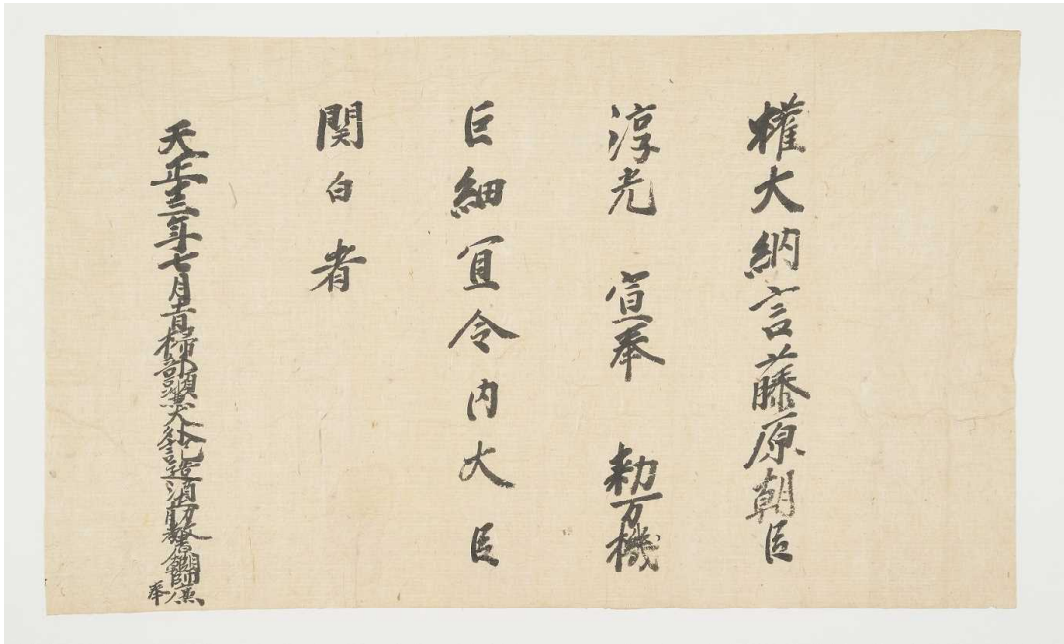 権大納言藤原朝臣
淳光 宣奉 勅万機
巨細宜令内大臣
関白者
天正十三年七月十一日掃部頭兼大外記造酒正助教師廉奉